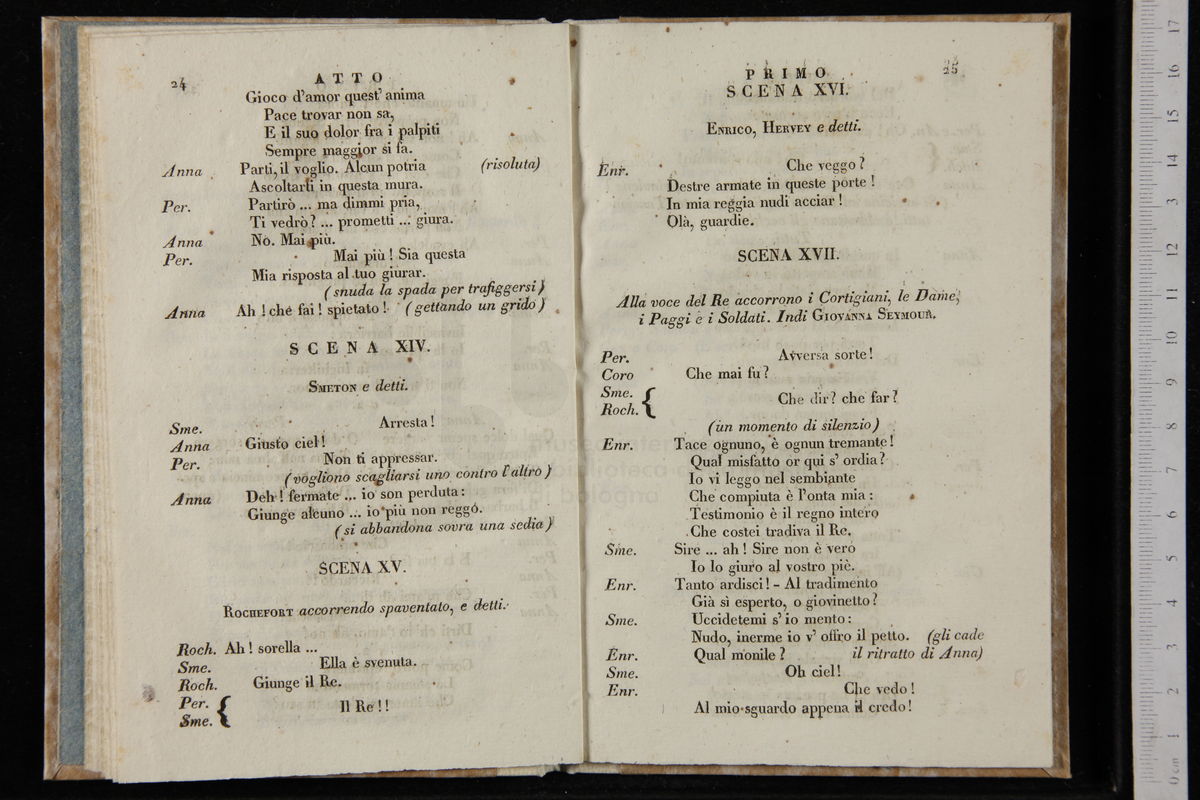 24
ATTO
Gioco d'amor quest' anima
Pace trovar non sa,
E il suo dolor fra i palpiti
Sempre maggior si fa.
Anna Parti, il voglio. Alcun potria (risoluta)
Ascoltarti in questa mura.
Per. Partirò ... ma dimmi pria,
Ti vedrò? ... prometti ... giura.
Anna No. Mai più.
Per. Mai più! Sia questa
Mia risposta al tuo giurar.
(snuda la spada per trafiggersi)
Anna Ah! che fai! spietato! (gettando un grido)
SCENA XIV.
SMETON e detti.
Sme. Arresta!
Anna Giusto ciel!
Per. Non ti appressar.
(vogliono scagliarsi uno contro l'altro)
Anna Deh! fermate ... io son perduta:
Giunge alcuno ... io più non reggo.
(si abbandona sovra una sedia)
SCENA XV.
ROCHEFORT accorrendo spaventato, e detti.
Roch. Ah! sorella ...
Sme. Ella è svenuta.
Roch. Giunge il Re.
Per. Sme. { Il Re!!
PRIMO
25
SCENA XVI.
ENRICO, HERVEY e detti.
Enr. Che veggo?
Destre armate in queste porte!
In mia reggia nudi acciar!
Olà, guardie.
SCENA XVII.
Alla voce del Re accorrono i Cortigiani, le Dame,
i Paggi e i Soldati. Indi GIOVANNA SEYMOUR.
Per. Avversa sorte!
Coro Che mai fu?
Sme. Roch. { Che dir? che far?
(un momento di silenzio)
Enr. Tace ognuno, è ognun tremante!
Qual misfatto or qui s' ordia?
Io vi leggo nel sembiante
Che compiuta è l'onta mia:
Testimonio è il regno intero
Che costei tradiva il Re.
Sme. Sire ... ah! Sire non è vero
Io lo giuro al vostro piè.
Enr. Tanto ardisci! - Al tradimento
Già sì esperto, o giovinetto?
Sme. Uccidetemi s' io mento:
Nudo, inerme io v' offro il petto. (gli cade
Enr. Qual monile? il ritratto di Anna)
Sme. Oh ciel!
Enr. Che vedo!
Al mio sguardo appena il credo!